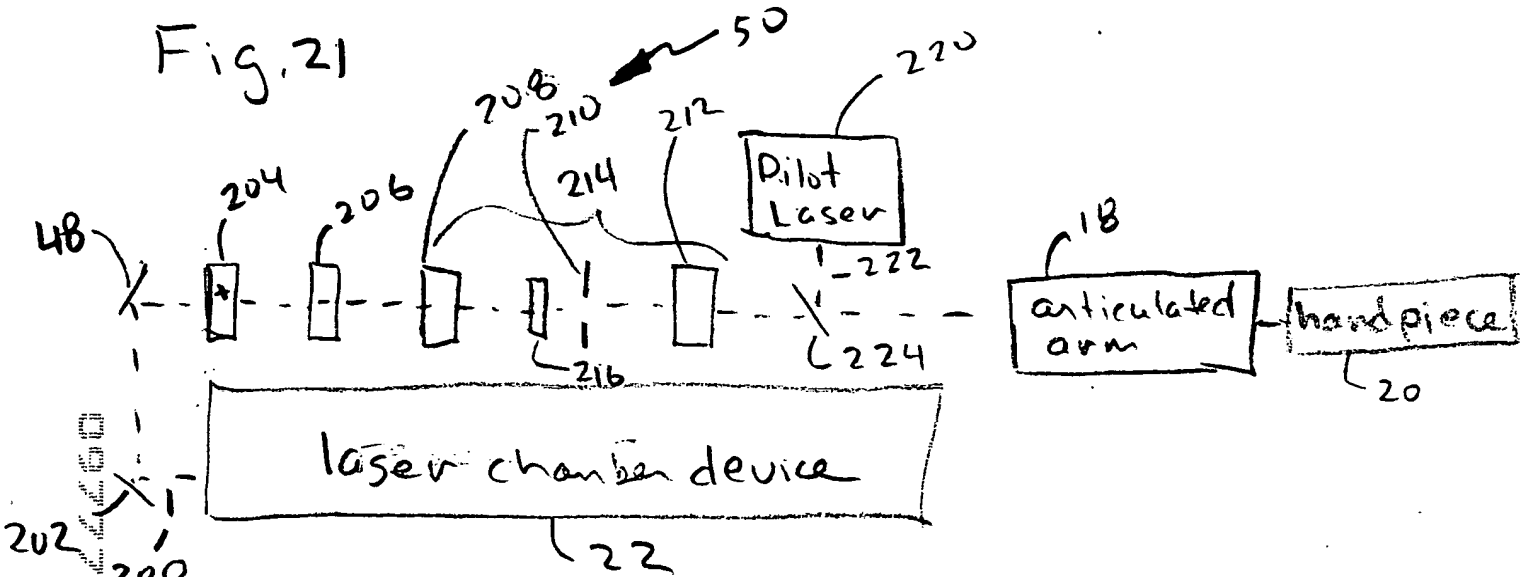 Fig. 21
50
220
208
210
212
Pilot
Laser
204
206
214
18
48
222
articulated
arm
handpiece
224
216
20
laser chamber device
202
200
22